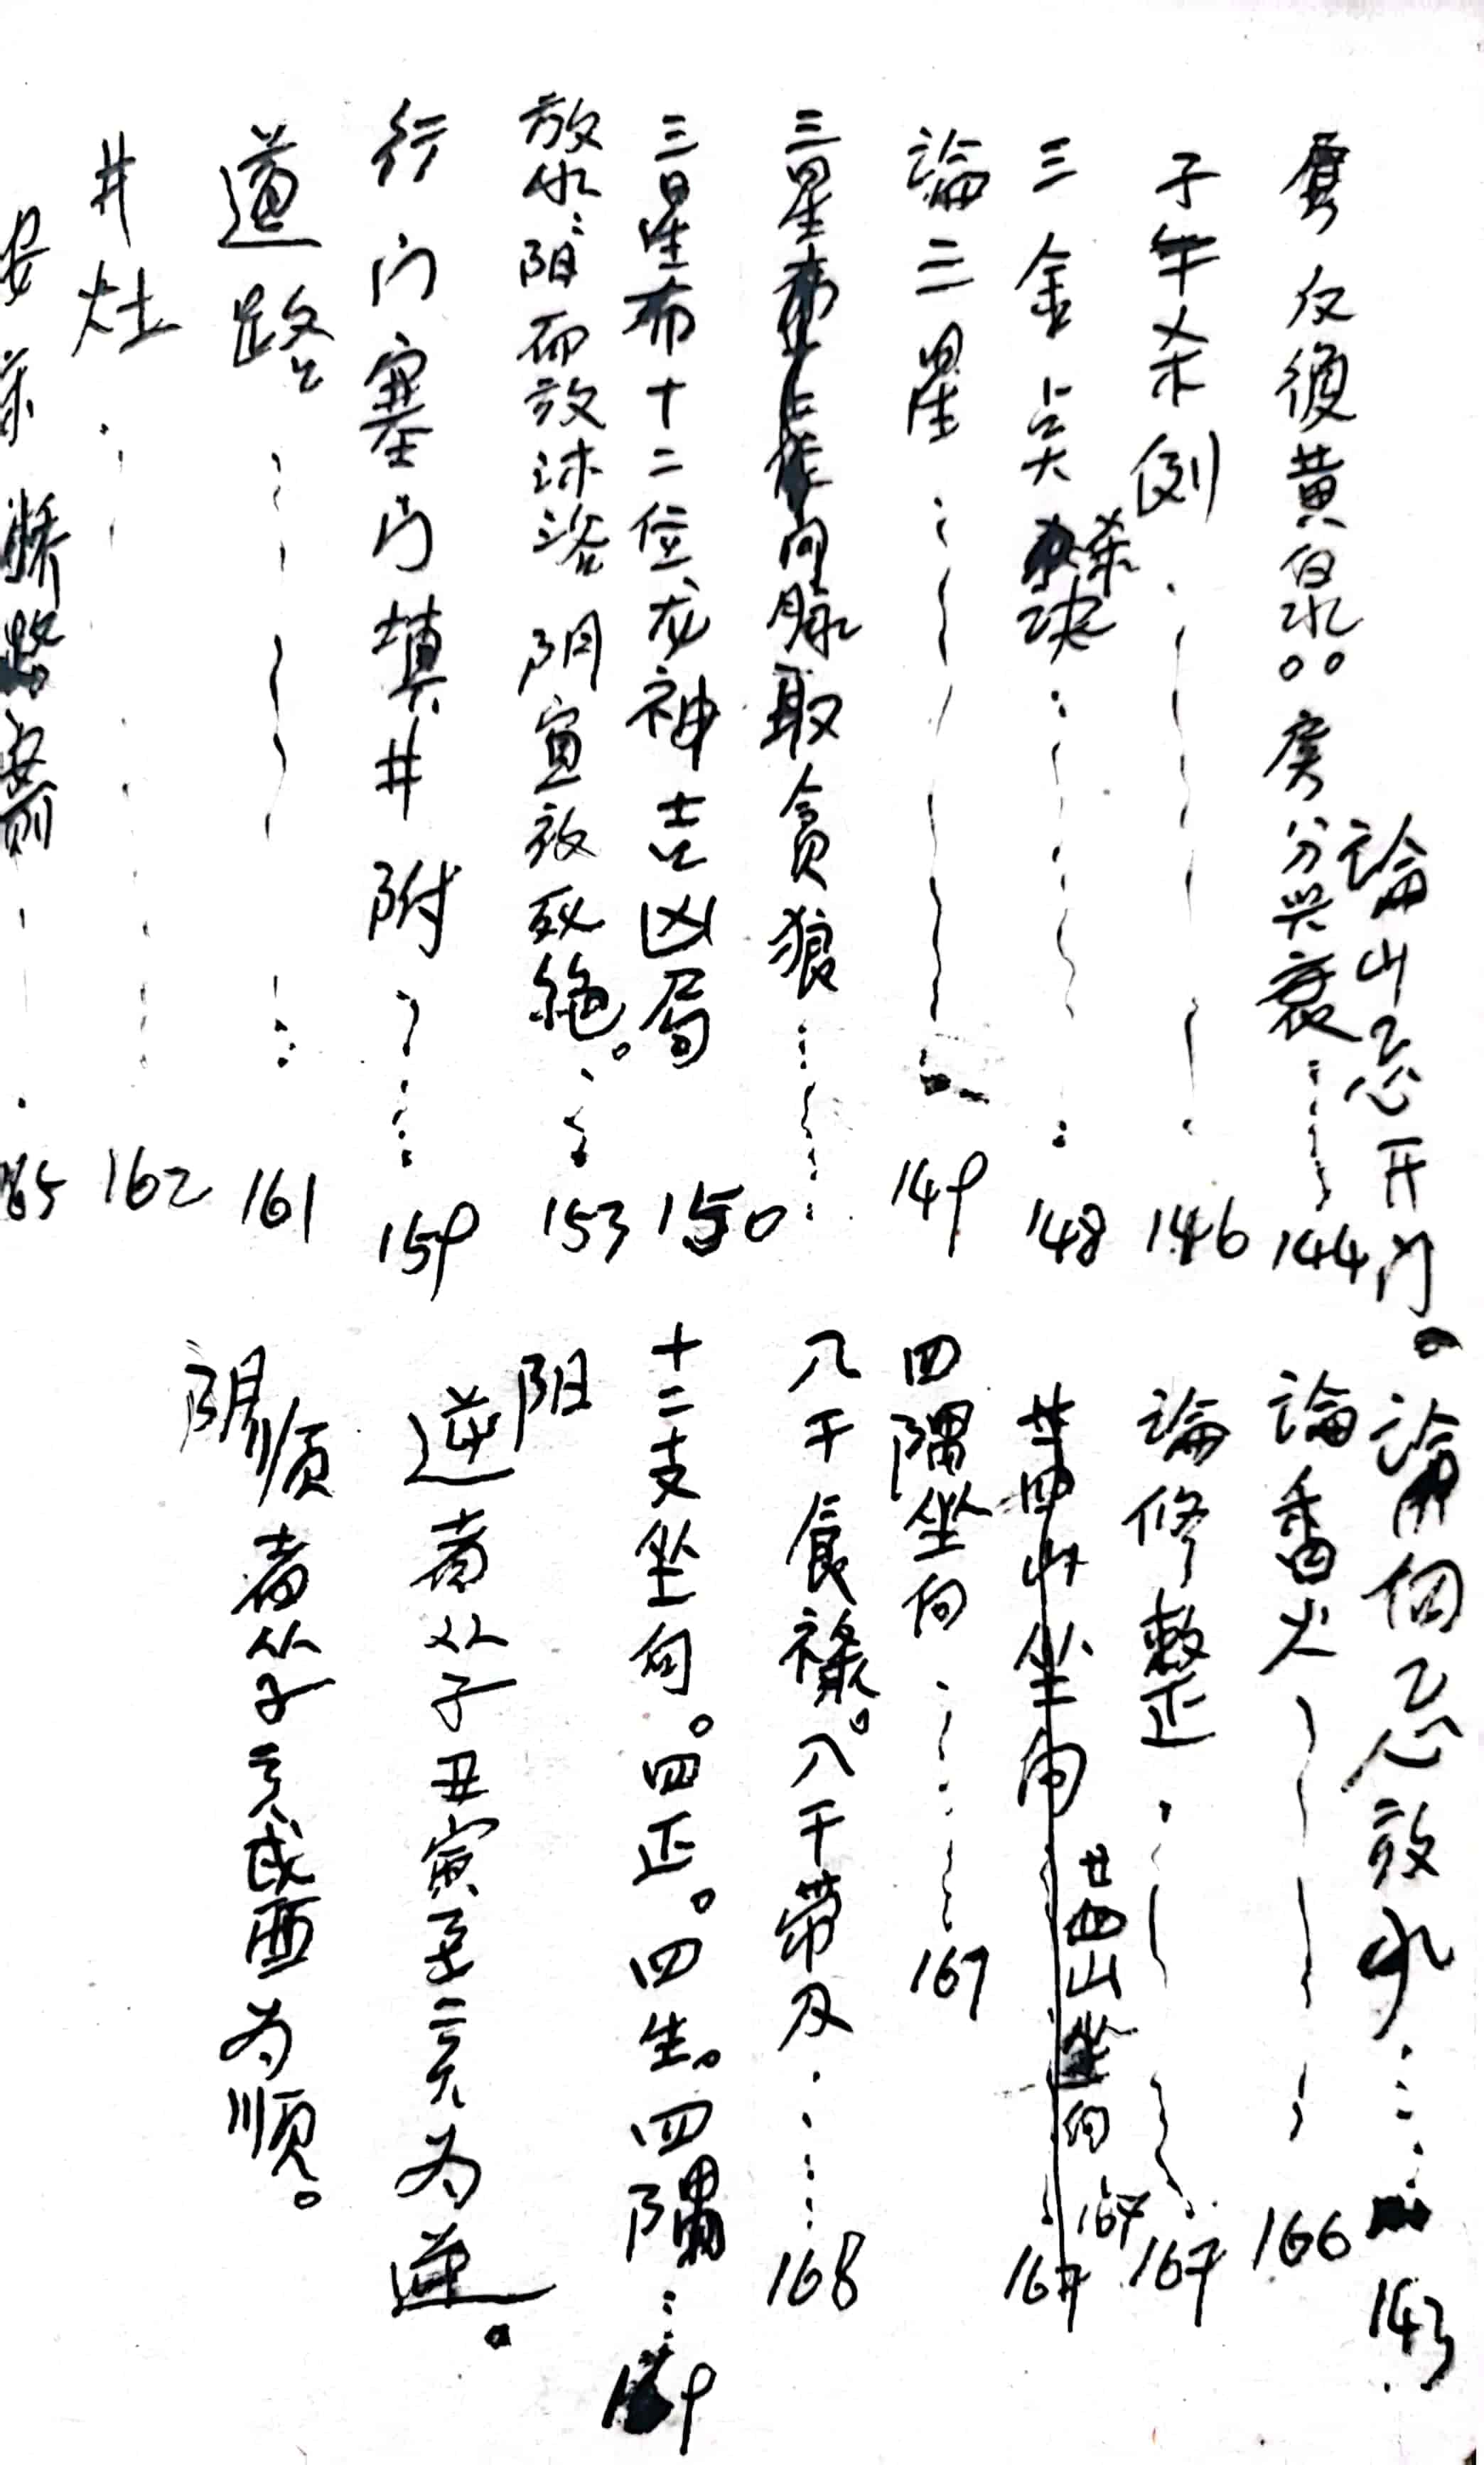 論山忌开门。論向忌放水 143
反復黄泉。。房分兴衰 144
子午杀例 146
三金 杀诀 148
論三星 149
三星 问脉取貪狼
三星布十二位龙神吉凶局 150
放水：阳而放沐浴 阴宜放死絶。 153
行门塞门填井附 159
道路 161
井灶 162
65
論香火 166
論修整正 167
廿四山坐向 167
廿四山坐向 167
四隅坐向 167
八干食禄。八干带刃 168
十二支坐向。四正。四生。四隅 9
阳
逆者从子丑寅至亥为逆。
陽
顺者从子亥戌酉为順。